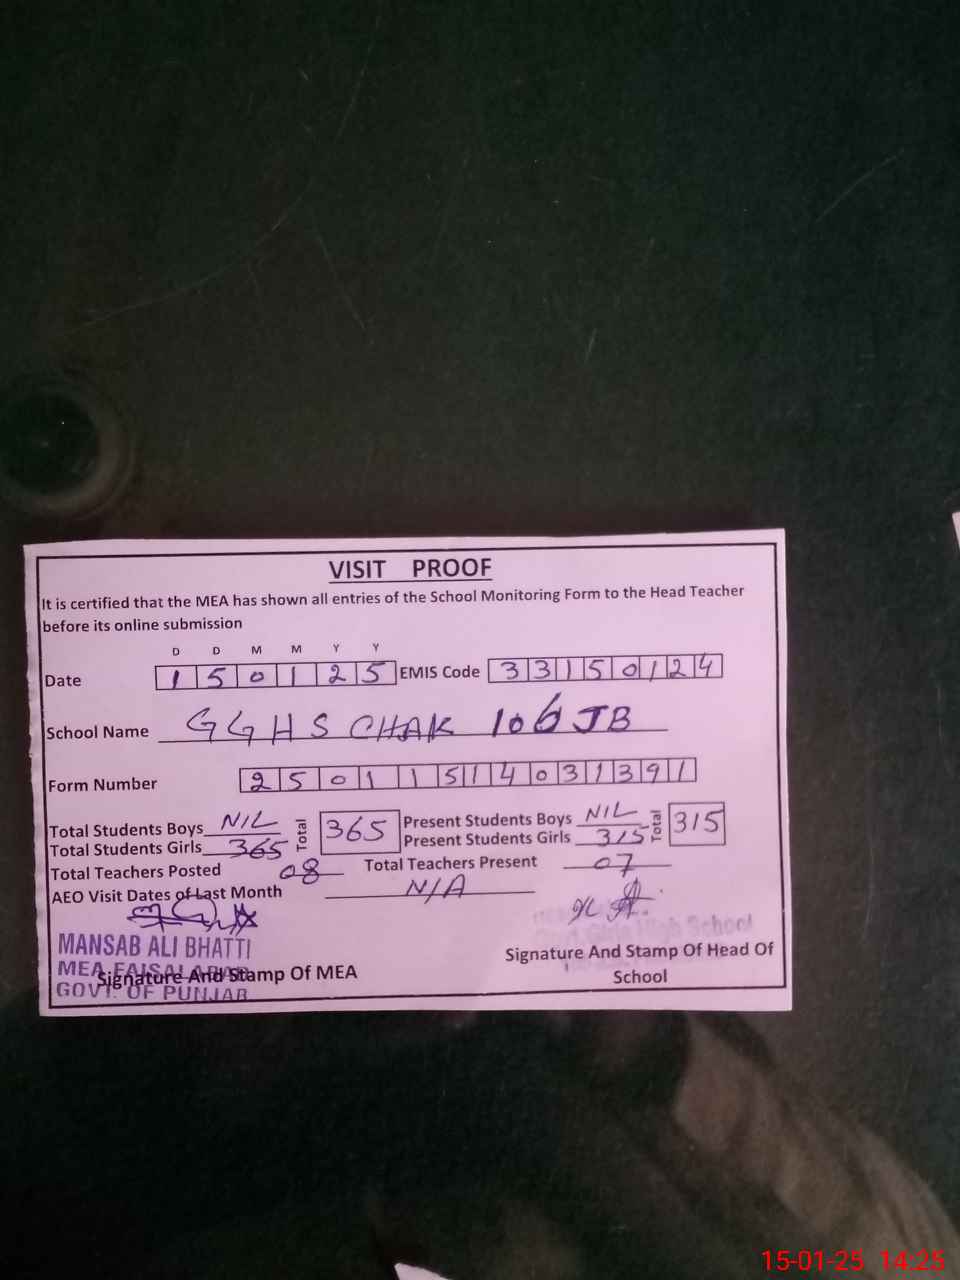 VISIT PROOF
It is certified that the MEA has shown all entries of the School Monitoring Form to the Head Teacher
before its online submission
D D M M Y Y
Date 1 5 0 1 2 5 EMIS Code 3 3 1 5 0 1 2 4
School Name GGHS CHAK 106 JB
Form Number 2 5 0 1 1 5 1 4 0 3 1 3 9 1
Total Students Boys NIL Total 365 Present Students Boys NIL Total 315
Total Students Girls 365 Present Students Girls 315
Total Teachers Posted 08 Total Teachers Present 07
AEO Visit Dates of Last Month N/A
MANSAB ALI BHATTI
MEA FAISALABAD
GOVT. OF PUNJAB
Signature And Stamp Of MEA
Girls High School
Signature And Stamp Of Head Of
School
15-01-25 14:25